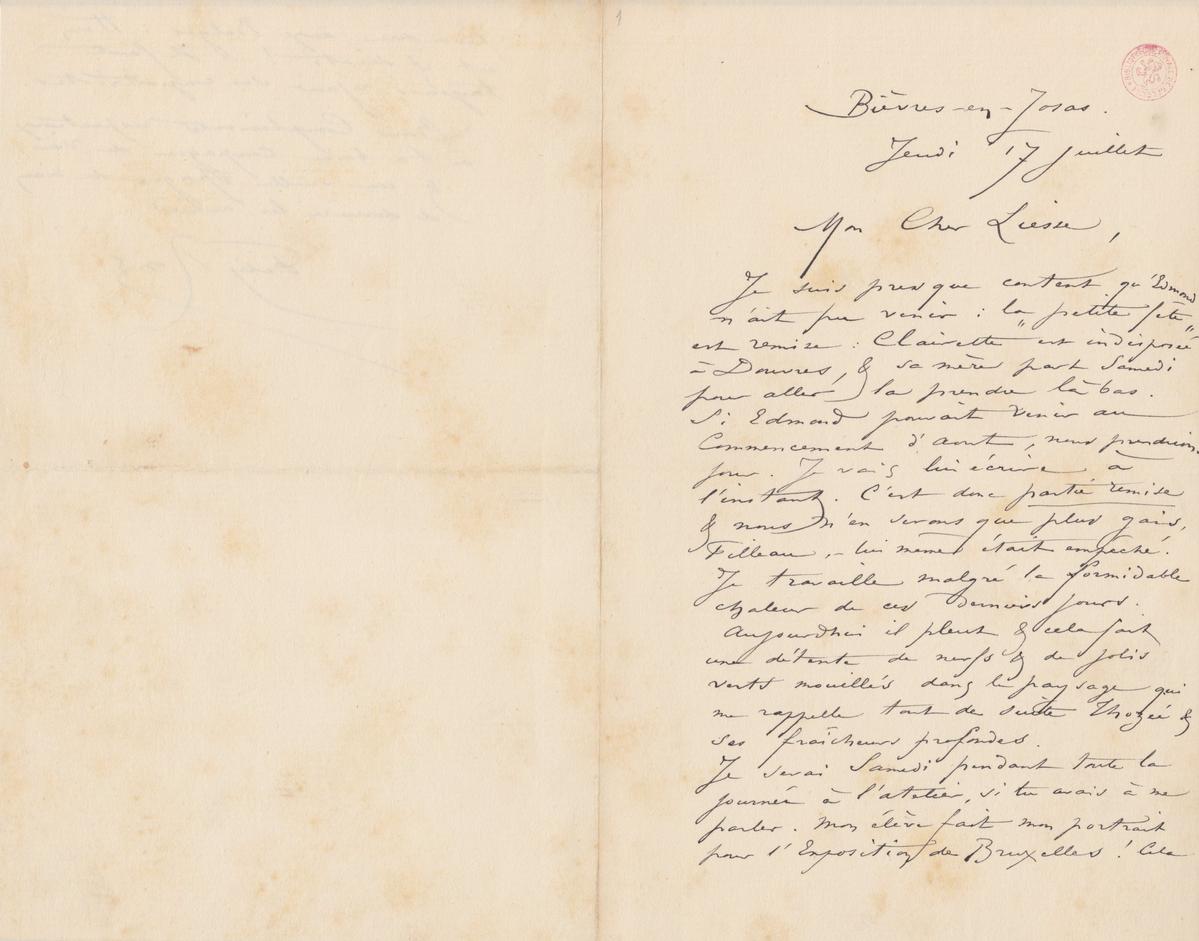 1
Bièvres-en-Josas.
Jeudi 17 Juillet
Mon Cher Liesse,
Je suis presque content qu'Edmond
n'ait pu venir : la petite fête
est remise : "Clairette" est indisposée
à Douvres, & sa mère part Samedi
pour aller la prendre là bas.
Si Edmond pouvait venir au
Commencement d'aout, nous prendrions
jour. Je vais lui écrire à
l'instant. C'est donc partie remise
& nous n'en serons que plus gais,
Filleau, - lui même était empeché.
Je travaille malgré la formidable
chaleur de ces derniers jours.
Aujourdhui il pleut & cela fait
une détente de nerfs & de jolis
verts mouillés dans le paysage qui
me rappelle tout de suite Thozée &
ses fraîcheurs profondes.
Je serai Samedi pendant toute la
journée à l'atelier, si tu avais à me
parler. Mon élève fait mon portrait
pour l'Exposition de Bruxelles ! Cela